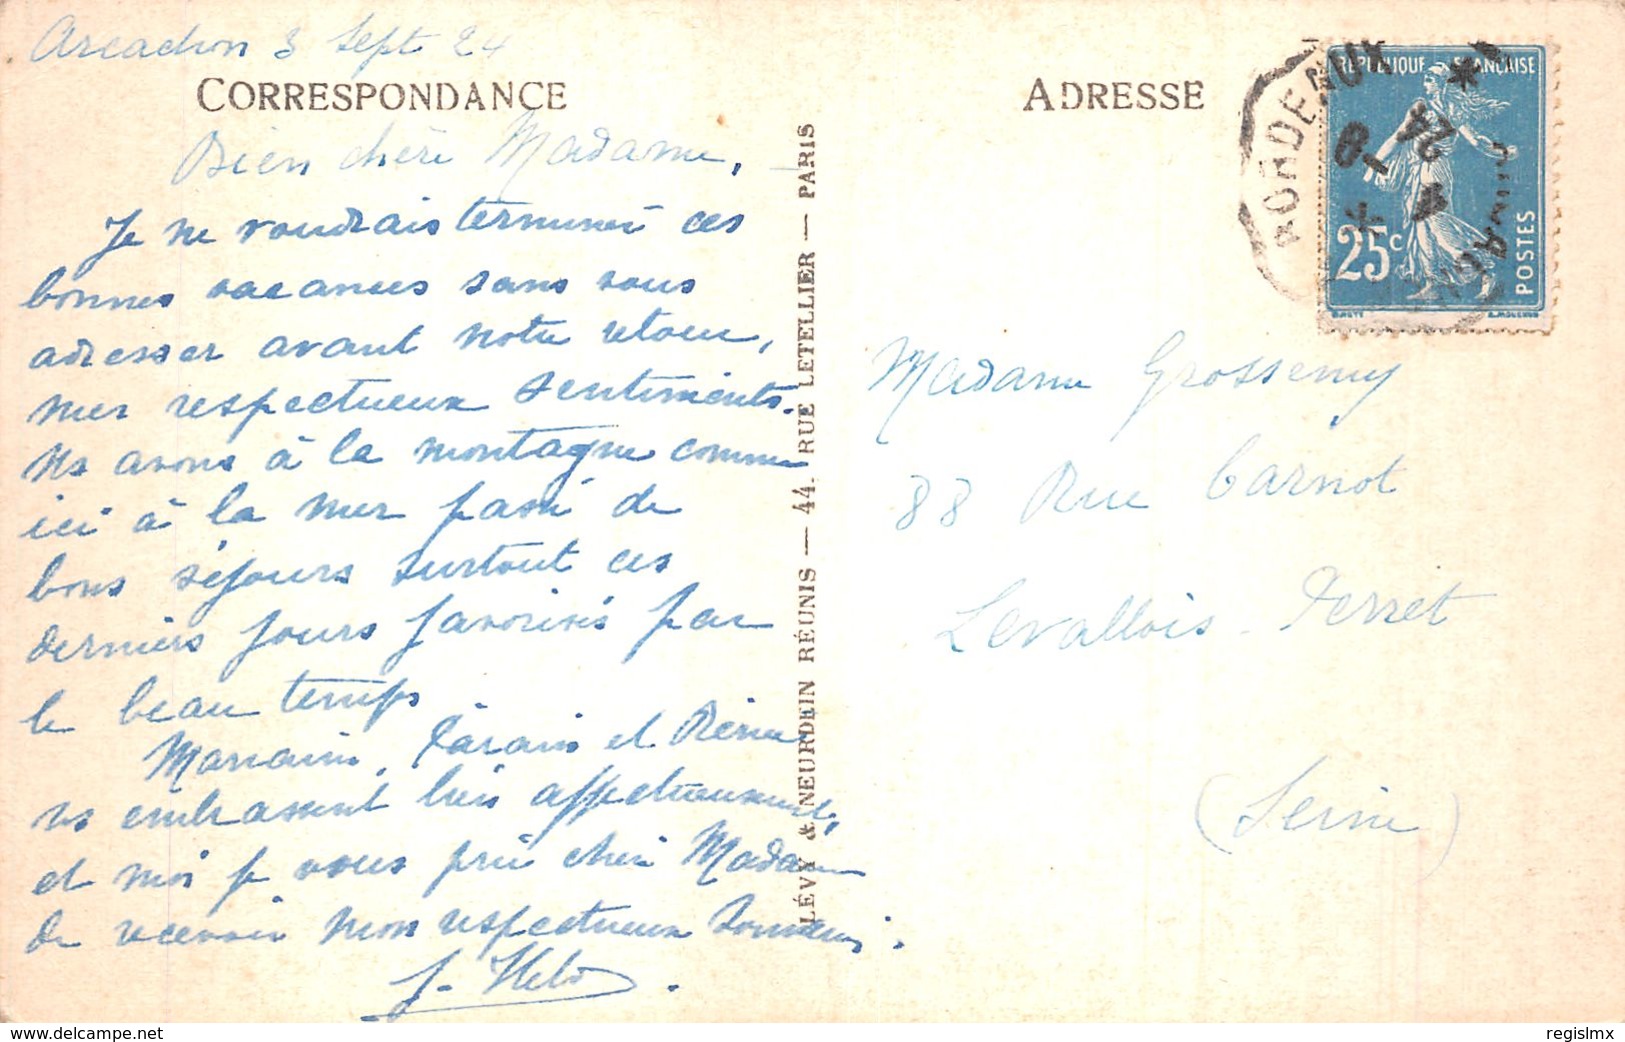 Arcachon 3 Sept 24
CORRESPONDANCE
Bien chère Madame,
Je ne voudrais terminer ces
bonnes vacances sans vous
adresser avant notre retour,
mes respectueux sentiments.
Ns avons à la montagne comme
ici à la mer passé de
bons séjours surtout ces
derniers jours favorisés par
le beau temps
Marraine, Parain et
vs embrassent bien affectueusement,
et moi je vous prie chère Madame
de recevoir mon respectueux souvenir.
J.
LÉVY & NEURDEIN RÉUNIS — 44, RUE LETELLIER — PARIS
ADRESSE
RÉPUBLIQUE FRANÇAISE
25c
POSTES
BORDEAUX
24
Madame Grossemy
88 Rue Carnot
Levallois-Perret
(Seine)
delcampe.net
regislmx